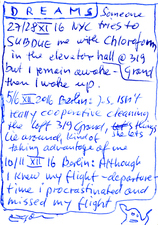 DREAMS Someone
27/28 XI 16 NYC tries to
SUBDUE me with Chloroform
in the elevator hall @ 319
Grand
but I remain awake -
then I wake up.
5/6 XII 2016 Berlin: J.S. isn't
really cooperative cleaning
the loft 319 Grand, lets things
lie around, kind of she lets
taking advantage of me
10/11 XII 16 Berlin: Although
I knew my flight-departure-
time i procrastinated and
missed my flight